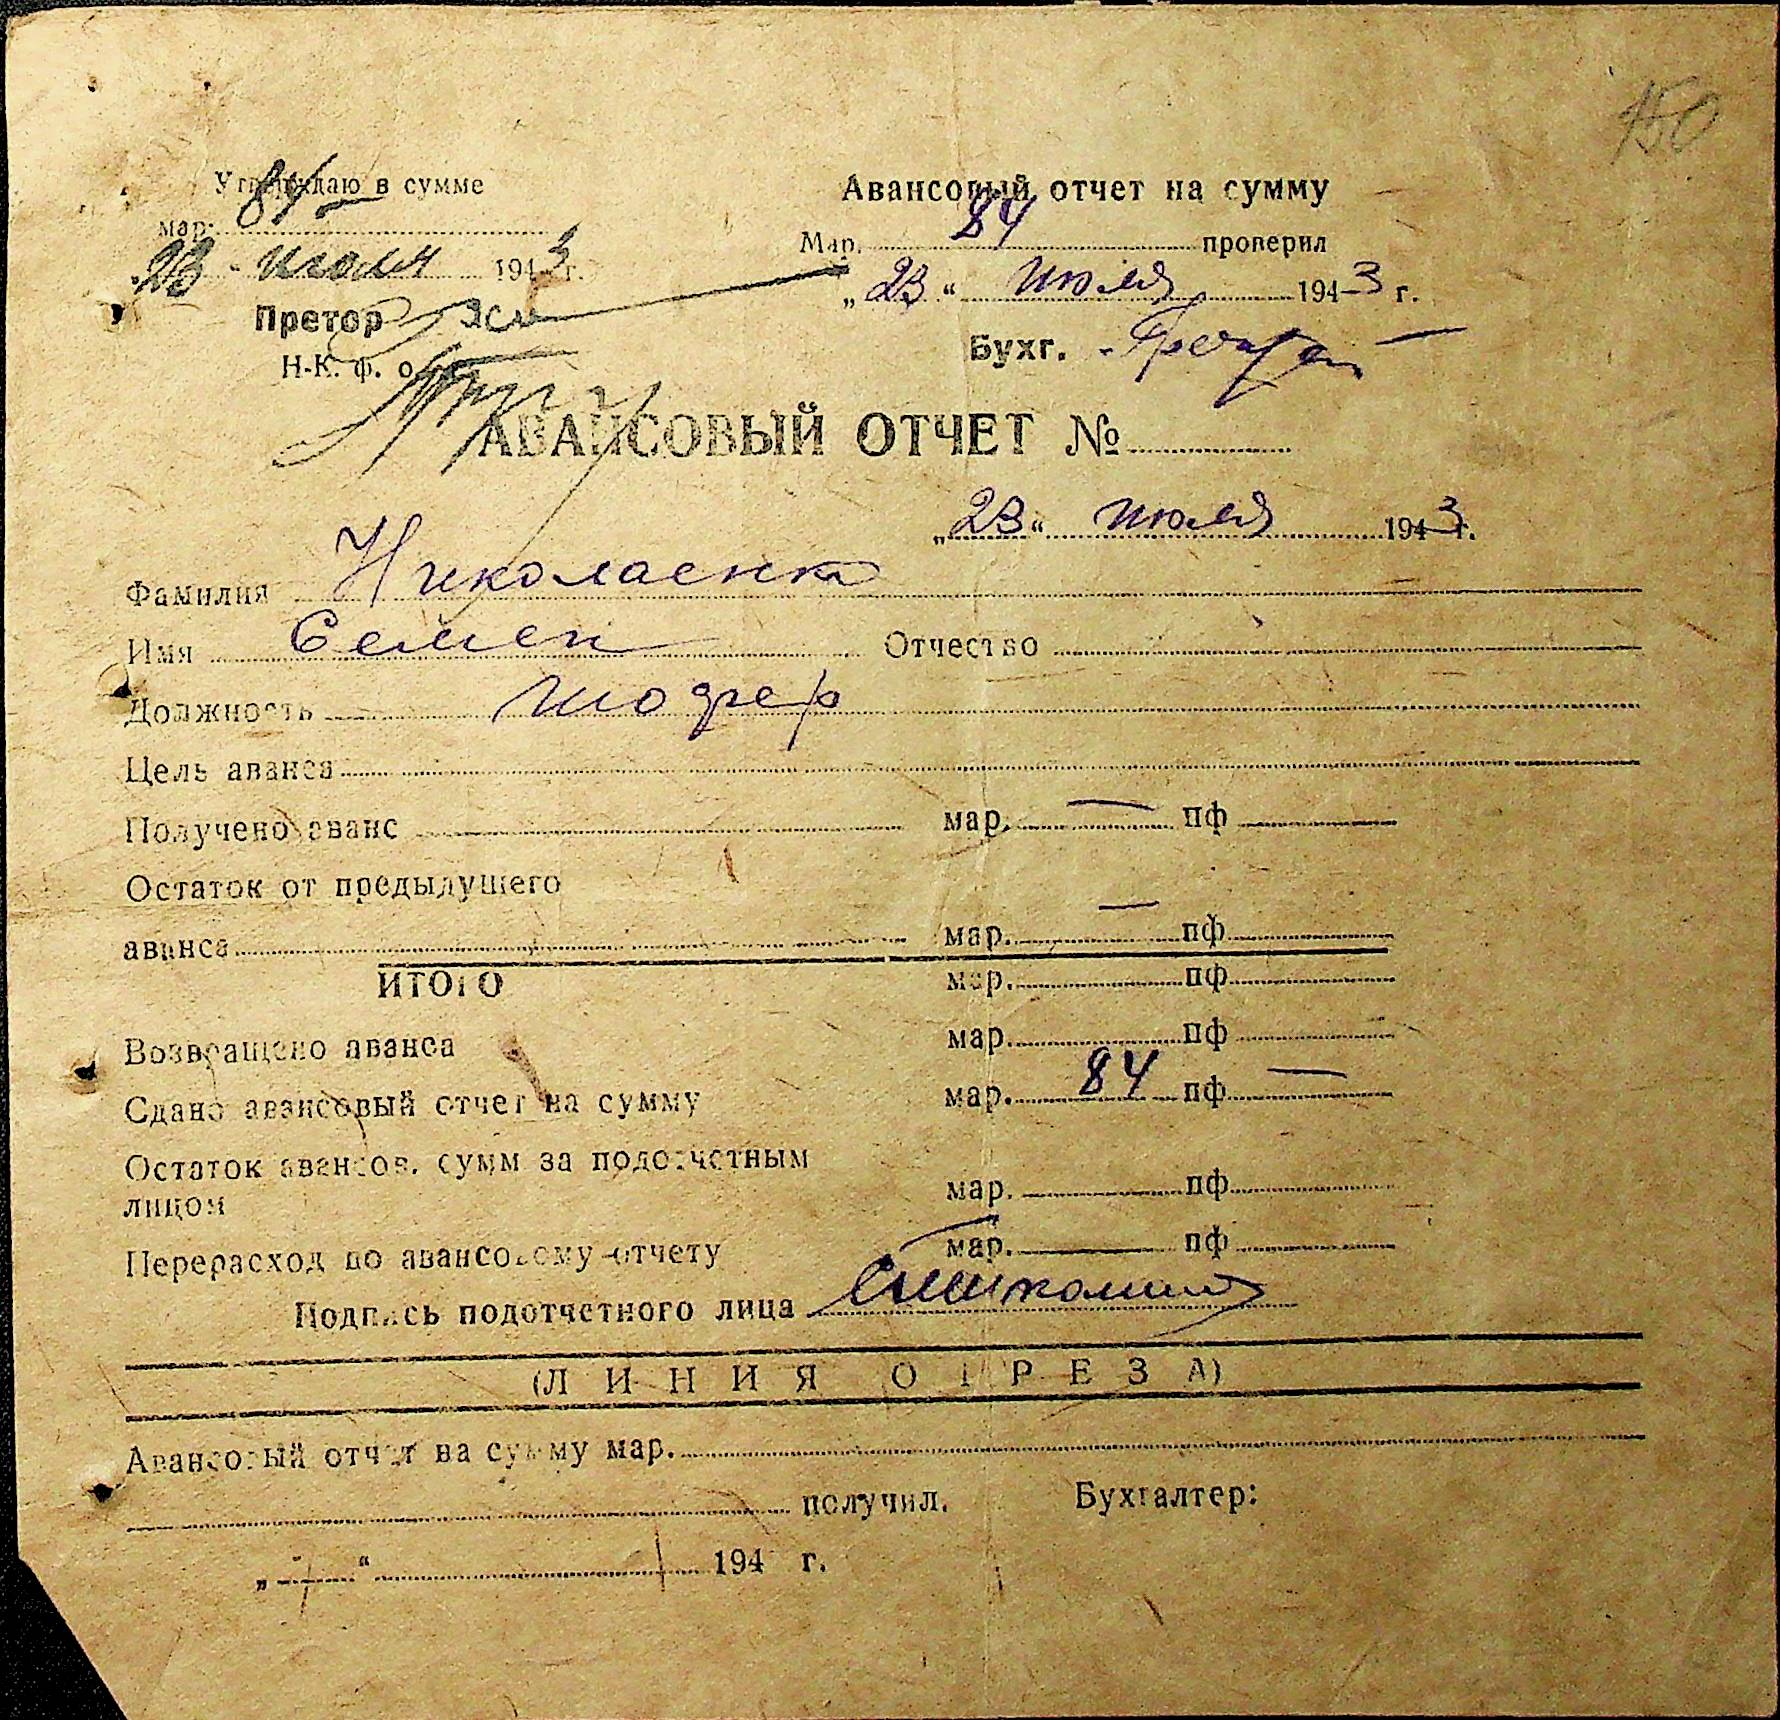 150
Утверждаю в сумме
мар. 84
23 - июля 1943 г.
Претор
Н-К. ф. о.
Авансовый отчет на сумму
Мар. 84 проверил
„23“ июля 1943 г.
Бухг.
АВАНСОВЫЙ ОТЧЕТ №
„23“ июля 1943 г.
Фамилия Николаенко
Имя Семен Отчество
Должность шофер
Цель аванса
Получено аванс мар. — пф
Остаток от предыдущего
аванса мар. — пф
ИТОГО мар. пф
Возвращено аванса мар. пф
Сдано авансовый отчет на сумму мар. 84 пф —
Остаток авансов. сумм за подотчетным
лицом мар. пф
Перерасход по авансовому отчету мар. пф
Подпись подотчетного лица
(ЛИНИЯ ОТРЕЗА)
Авансовый отчет на сумму мар.
получил. Бухгалтер:
„ “ 194 г.